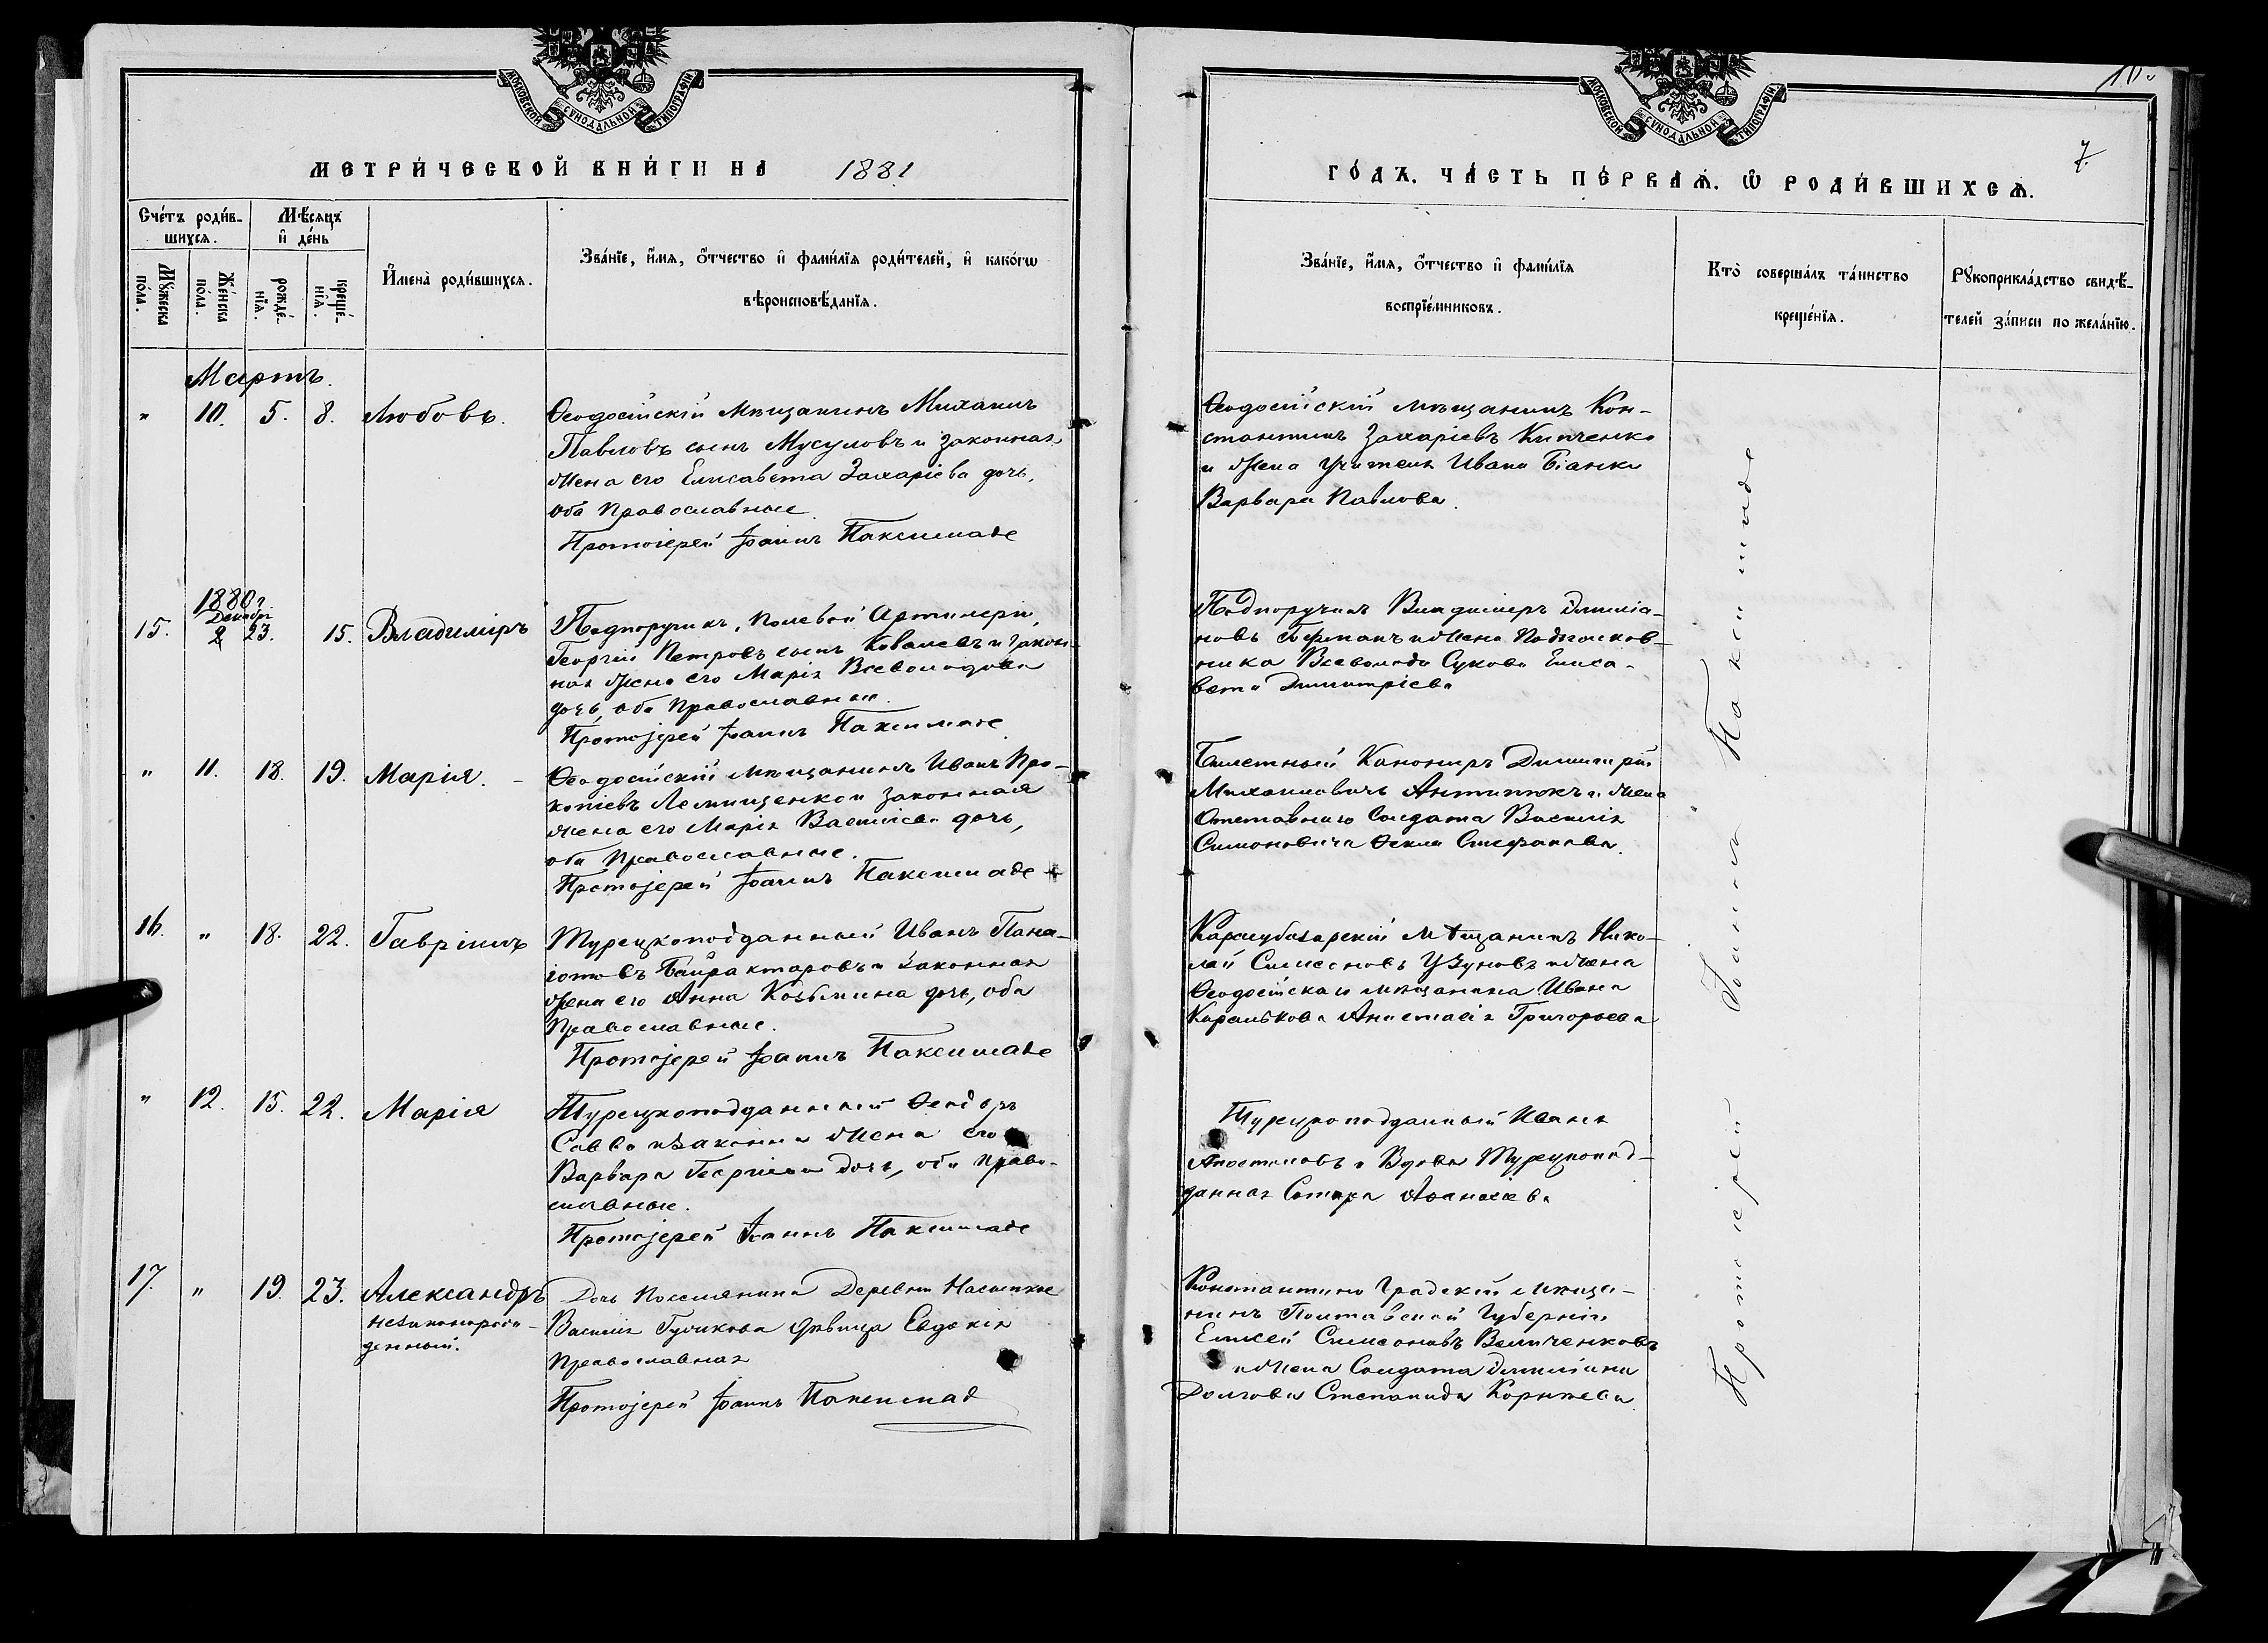 МОСКОВСКОЙ СѴНОДАЛЬНОЙ ТИПОГРАФІИ
МЕТРИ́ЧЕСКОЙ КНИ́ГИ НА 1881
Сче́тъ роди́в-
шихся.
Мѣ́сяцъ
и҆ де́нь
Мꙋ́жеска
по́ла.
Же́нска
по́ла.
рожде́-
нїя.
креще́-
нїя.
И҆мена̀ роди́вшихся.
Зва́нїе, и҆́мя, ѻ҆́тчество и҆ фами́лїя роди́телей, и҆ како́гѡ
вѣроисповѣ́данїя.
Мартъ.
" 10. 5. 8. Любовь.
Ѳеодосійскій мѣщанинъ Михаилъ
Павловъ сынъ Мусуловъ и законная
жена его Елисавета Захаріева дочь,
оба Православные.
Протоіерей Іоаннъ Паксимаде
1880 г
Декабр.
15. 23. 15. Владиміръ
Подпоручикъ, Полевой Артилеріи,
Георгій Петровъ сынъ Ковалевъ и закон-
ная жена его Марія Всеволодова
дочь, оба Православные.
Протоіерей Іоаннъ Паксимаде
" 11. 18. 19. Марія.
Ѳеодосійскій мѣщанинъ Иванъ Про-
копіевъ и законная
жена его Марія Василіева дочь,
оба Православные.
Протоіерей Іоаннъ Паксимаде
16. " 18. 22. Гавріилъ
Турецкоподданный Иванъ Пана-
іотовъ Байрактаровъ и законная
жена его Анна Козьмина дочь, оба
Православные.
Протоіерей Іоаннъ Паксимаде
" 12. 15. 22. Марія
Турецкоподданный Ѳеодоръ
Савва и законна жена его
Варвара Георгіева дочь, оба право-
славные.
Протоіерей Іоаннъ Паксимаде
17. " 19. 23. Александръ
незаконорож-
денный.
Дочь Поселянина Деревни Насыпкое
Василія дѣвица Евдокія
Православная
Протоіерей Іоаннъ Паксимад
МОСКОВСКОЙ СѴНОДАЛЬНОЙ ТИПОГРАФІИ
7.
ГО́ДЪ. ЧА́СТЬ ПЕ́РВАЯ. Ѡ҆ РОДИ́ВШИХСЯ.
Зва́нїе, и҆́мя, ѻ҆́тчество и҆ фами́лїя
воспрїе́мниковъ.
Кто̀ соверша́лъ та́инство
креще́нїя.
Рꙋкоприкла́дство свидѣ́-
телей за́писи по жела́нїю.
Ѳеодосійскій мѣщанинъ Кон-
стантинъ Захаріевъ Кипченко
и жена учителя Ивана Біанки
Варвара Павлова.
Подпоручикъ Владимеръ Эмиліа-
новъ Германъ и жена Подполков-
ника Всеволода Сукова Елиса-
вета Димитріева
Билетный Канониръ Димитрій
Михаиловичъ и жена
Отставнаго Солдата Василія
Симоновича Ѳекла Стефанова.
Карасубазарскій Мѣщанинъ Нико-
лай Симеоновъ Узуновъ и жена
Ѳеодосійскаго мѣщанина Ивана
Анастасія Григорьева
Турецкоподданный Иванъ
Апостоловъ и Вдова Турецкопод-
данная Сотира Аѳанасіева
Константино Градскій мѣща-
нинъ Полтавской Губерніи
Елисей Симеоновъ Величенковъ
и жена Солдата Эмиліана
Долгова Степанида Корнѣева.
Протоіерей Іоаннъ Паксимаде